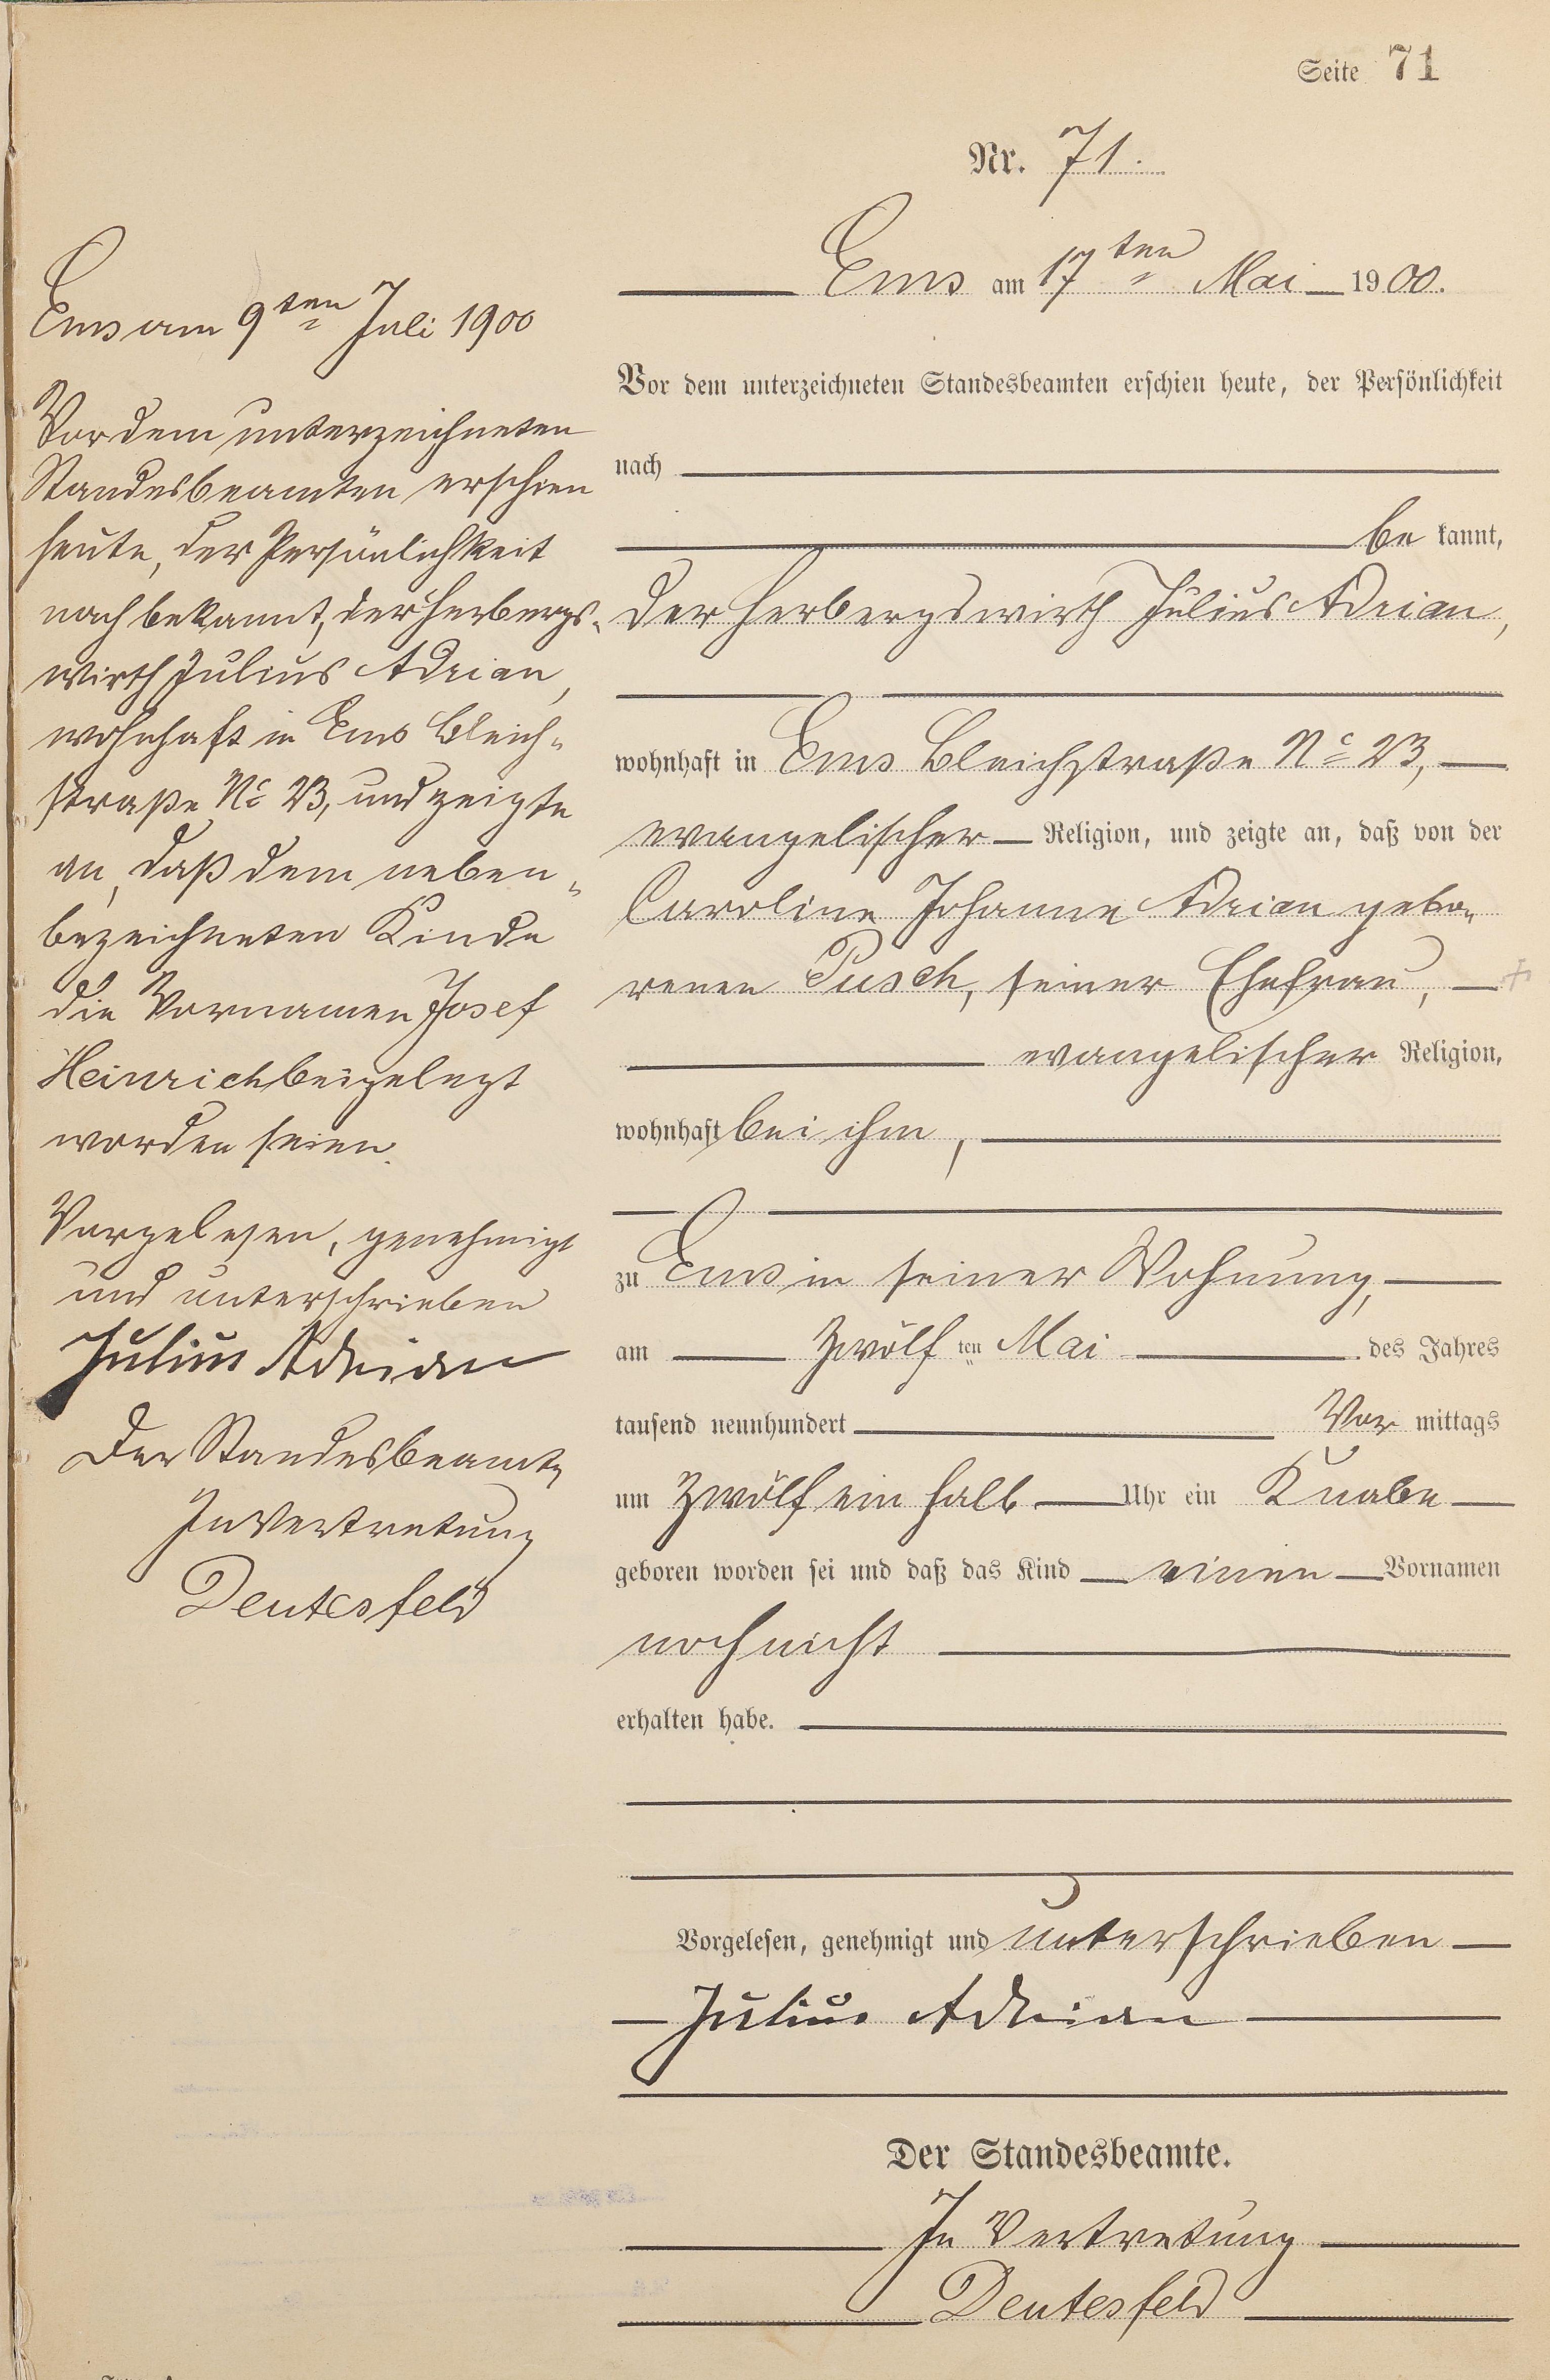 Seite 71
Nr. 71.
Ems am 17ten Mai 1900.
Vor dem unterzeichneten Standesbeamten erschien heute, der Persönlichkeit
nach
be kannt,
der Herbergswirth Julius Adrian,
wohnhaft in Ems Bleichstraße No 23,
evangelischer Religion, und zeigte an, daß von der
Caroline Johanne Adrian gebo-
renen Pusch, seiner Ehefrau,
evangelischer Religion,
wohnhaft bei ihm,
zu Ems in seiner Wohnung,
am zwölf ten Mai des Jahres
tausend neunhundert Vor mittags
um zwölf ein halb Uhr ein Knabe
geboren worden sei und daß das Kind einen Vornamen
noch nicht
erhalten habe.
Vorgelesen, genehmigt und unterschrieben
Julius Adrian
Der Standesbeamte.
In Vertretung
Deutesfeld
Ems am 9ten Juli 1900
Vor dem unterzeichneten
Standesbeamten erschien
heute, der Persönlichkeit
nach bekannt, der Herbergs-
wirth Julius Adrian,
wohnhaft in Ems Bleich-
straße No 23, und zeigte
an, daß dem neben-
bezeichneten Kinde
die Vornamen Josef
Heinrich beigelegt
worden seien.
Vorgelesen, genehmigt
und unterschrieben
Julius Adrian
Der Standesbeamte
In Vertretung
Deutesfeld